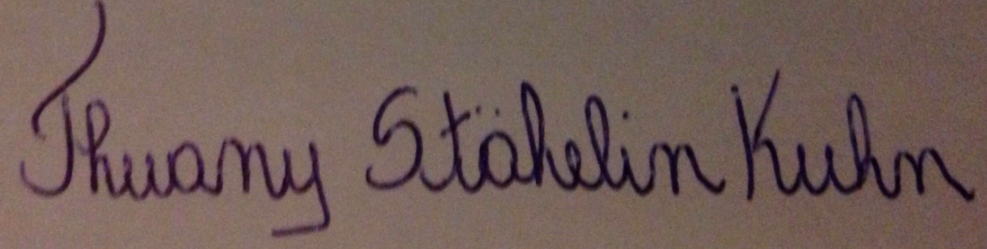 Thuany Stähelin Kuhn